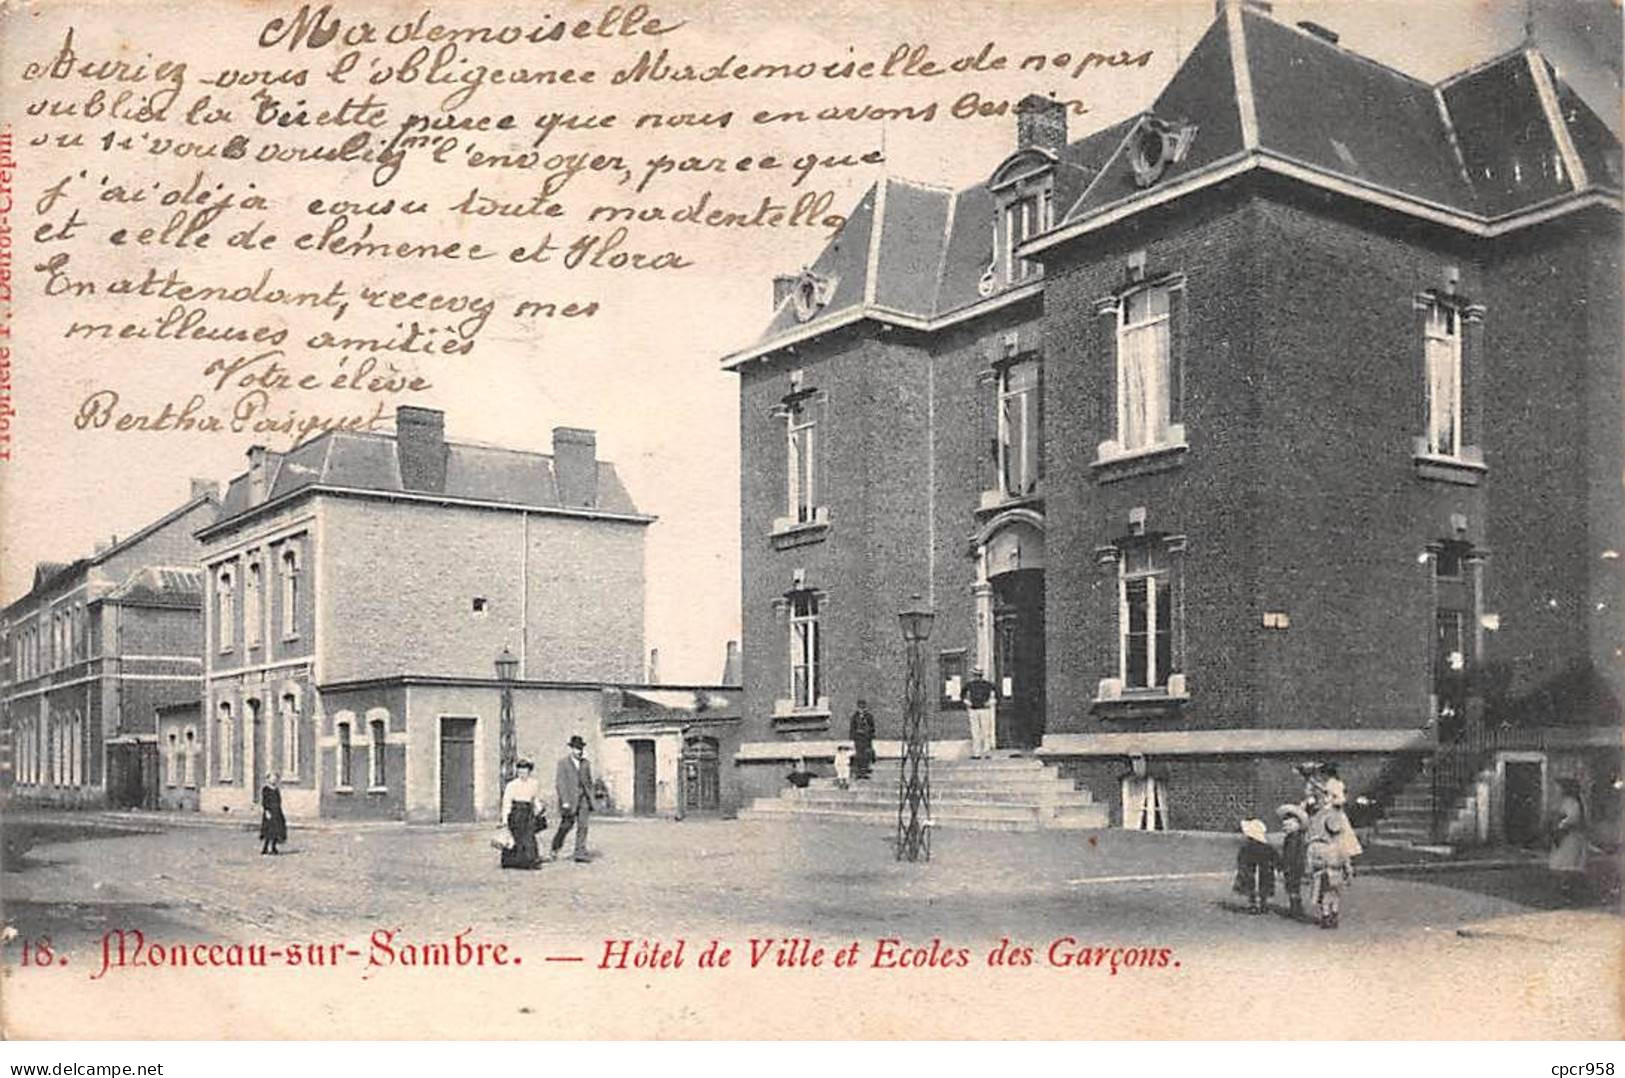 Mademoiselle
Auriez-vous l'obligeance Mademoiselle de ne pas
oublier la tirette parce que nous en avons besoin
ou si vous vouliez me l'envoyer, parce que
j'ai déjà cousu toute madentelle
et celle de clémence et Flora
En attendant, recevez mes
meilleures amitiés
Votre élève
Bertha Pasquet
Propriété F. Delfrot-Crépin.
18. Monceau-sur-Sambre. — Hôtel de Ville et Ecoles des Garçons.
delcampe.net
cpcr958